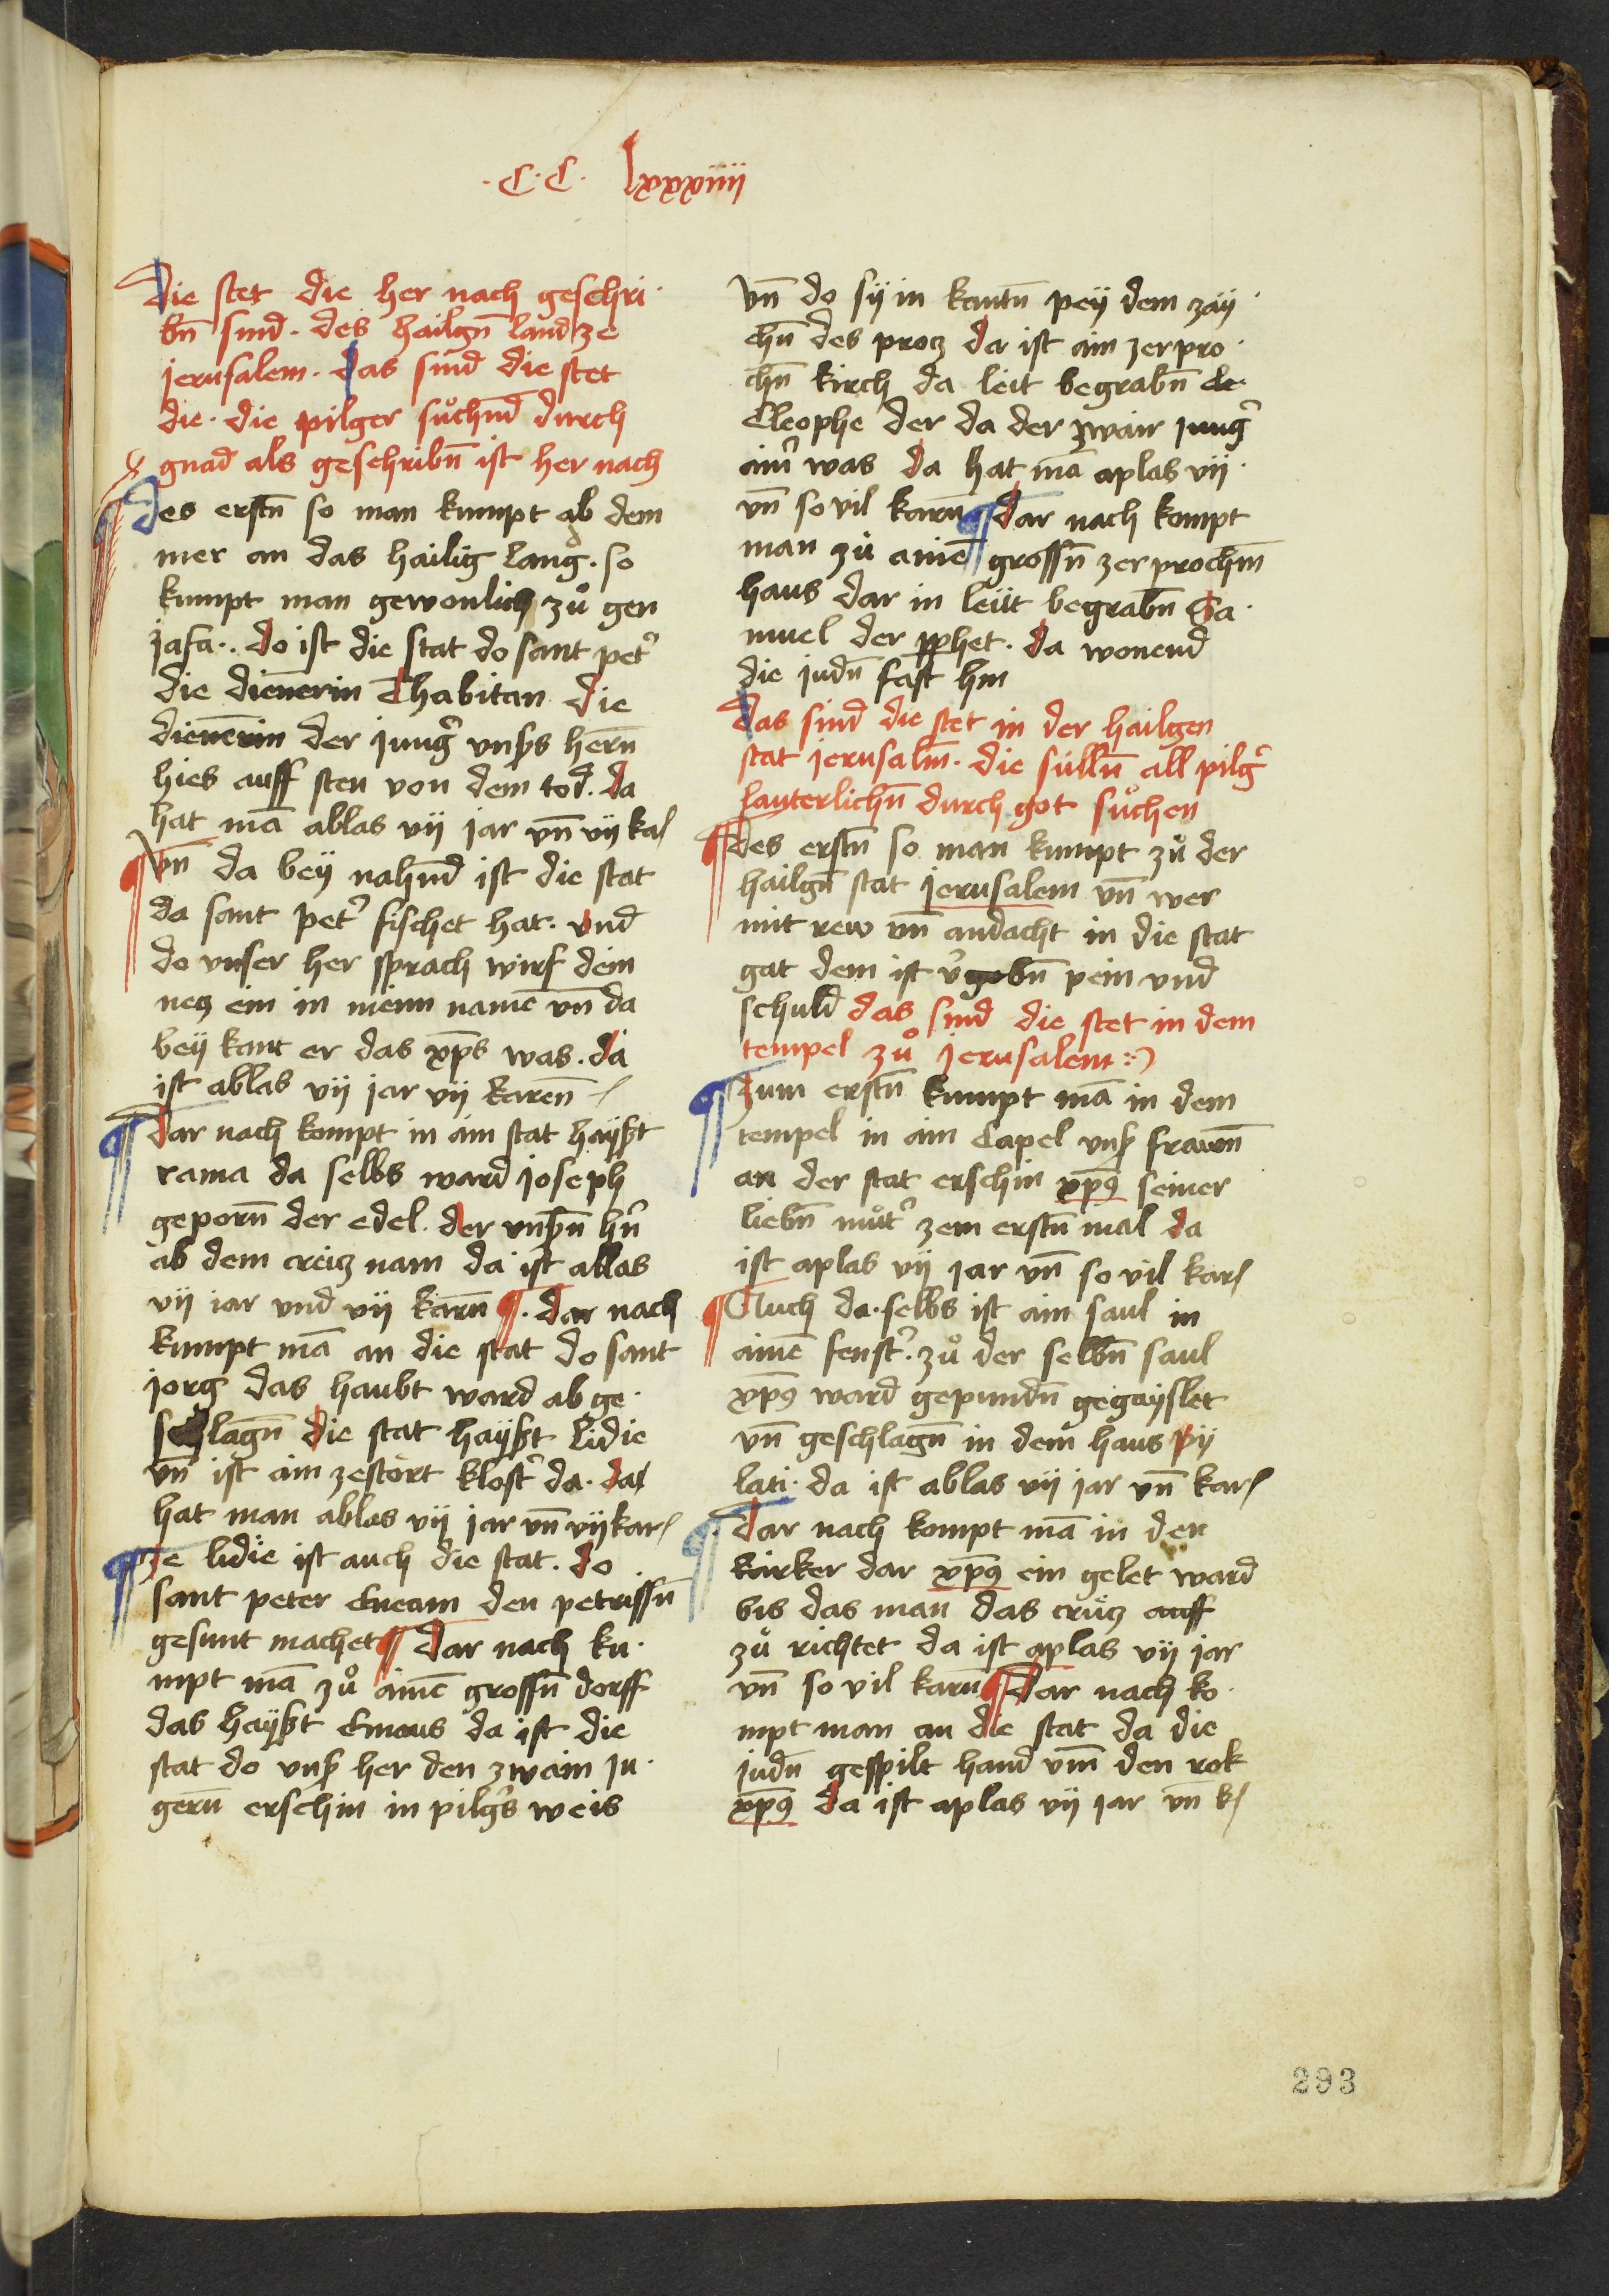 .C.C. lxxxiiii
Die stet die her nach geschri·
bn̄ sind. des hailgn̄ land ze
jerusalem. das sind die stet
die. die pilger sůchnd durch
gnad als geschribn̄ ist her nach
¶ Des erstn̄ so man kumpt ab dem
mer an das hailig lang. so
kumpt man gewonlich zů gen
jafa.. do ist die stat do sant pet̾
die dienerin Thabitan die
dienerin der jung̾ vnsers hern̄
hies auff sten von dem tod. da
hat mā ablas vij jar vn̄ vij kar
¶ Vn̄ da beÿ nahnd ist die stat
da sant pet̾ fischet hat. vnd
do vnser her sprach wirf dein
necz ein in meinn namē vn̄ da
beÿ kant er das xp̄s was. da
ist ablas vij jar vij karen̄
¶ Dar nach kompt in ain stat haÿßt
rama da selbs ward joseph
geporn̄ der edel. der vnsn̄ hn̄
ab dem creicz nam da ist ablas
vij iar vnd vij karn̄ ¶. Dar nach
kumpt mā an die stat do sant
jorg das haubt ward ab ge·
schlagn̄ die stat haÿßt Lidie
vn̄ ist ain zestört klost̾ da. da
hat man ablas vij jar vn̄ vij kar
¶ Ze lidie ist auch die stat. do
sant peter Eneam den petrissn̄
gesunt machet ¶ Dar nach ku·
mpt mā zů aimē grossn̄ dorff
das haÿßt Emaus da ist die
stat do vns̾ her den zwain ju·
gern̄ erschin in pilg̾s weis
vn̄ do sÿ in kantn̄ peÿ dem zaÿ·
chn̄ des procz da ist ain zerpro·
chn̄ kirch da leit begrabn̄ de
Cleophe der da der zwair jung̾
ain̾ was da hat mā aplas vij·
vn̄ so vil karn̄ ¶ Dar nach kompt
man zů aimē grossn̄ zerprochm̄
haus dar in leüt begrabn̄ Sa·
muel der pphet. da wonend
die judn̄ fast hin
Das sind die stet in der hailgen
stat jerusalm̄. die sülln̄ all pilg̾
lauterlichn̄ durch got sůchen
¶ Des erstn̄ so man kumpt zů der
hailgn̄ stat jerusalem vn̄ wer
mit rew vn̄ andacht in die stat
gat dem ist v̾gebn̄ pein vnd
schuld das sind die stet in dem
tempel zů jerusalem :)
¶ Zum erstn̄ kumpt mā in dem
tempel in ain Capel vns̾ frawn̄
an der stat erschin xp̄9 seiner
liebn̄ můt̾ zem erstn̄ mal da
ist aplas vij jar vn̄ so vil kar
¶ Auch da. selbs ist ain saul in
aimē fenst̾. zů der selbn̄ saul
xp̄9 ward gepundn̄ gegaÿslet
vn̄ geschlagn̄ in dem haus pÿ
lati. da ist ablas vij jar vn̄ kar
¶ Dar nach kompt mā in den
karker dar xp̄9 ein gelet ward
bis das man das crücz auff
zů richtet da ist aplas vij jar
vn̄ so vil karn̄ ¶ Dar nach ko·
mpt man an die stat da die
judn̄ gespilt hand vm̄ den rok
xp̄9 da ist aplas vij jar vn̄ k
293